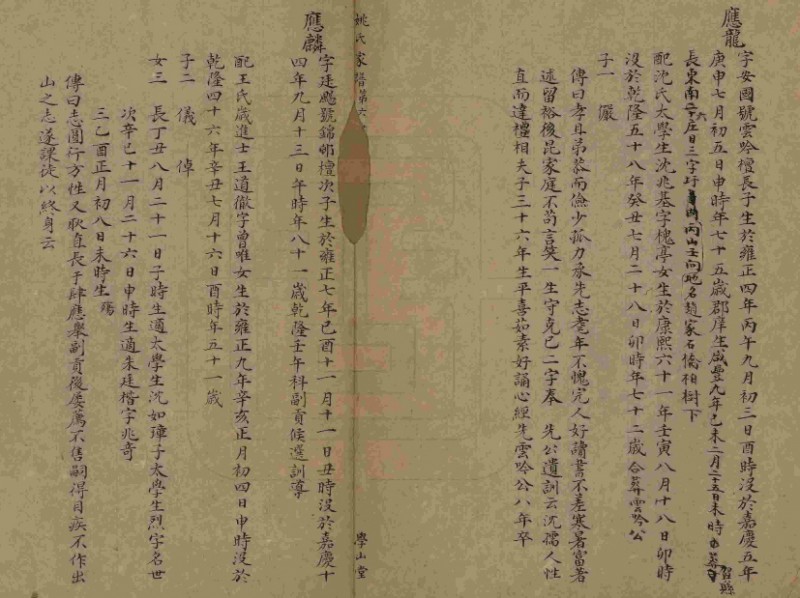 應龍
字安國號雲吟檀長子生於雍正四年丙午九月初三日酉時沒於嘉慶五年
庚申七月初五日申時年七十五歲郡庠生咸豐九年己未二月二十五日未時改葬
長東南二十六庄日三字圩丙山壬向地名趙家石橋柏樹下
配沈氏太學生沈兆基字槐亭女生於康熙六十一年壬寅八月十八日卯時
沒於乾隆五十八年癸丑七月二十八日卯時年七十二歲合葬雲吟公
子一 儼
傳曰孝且弟恭而儉少孤力承先志耄年不愧完人好讀書不差寒暑富著
述留裕後昆家庭不苟言笑一生守克己二字奉 先公遺訓云沈孺人性
直而達禮相夫子三十六年生平喜茹素好誦心經先雲吟公八年卒
姚氏家譜第六
學山堂
應麟
字廷颺號錦邨檀次子生於雍正七年己酉十一月十一日丑時沒於嘉慶十
四年九月十三日午時年八十一歲乾隆壬午科副貢候選訓導
配王氏歲進士王道徵字曾唯女生於雍正九年辛亥正月初四日申時沒於
乾隆四十六年辛丑七月十六日酉時年五十一歲
子二 儀 倬
女三 長丁丑八月二十一日子時生適太學生沈如璋子太學生烈字名世
次辛巳十一月二十六日申時生適朱廷楷字兆奇
三乙酉正月初八日未時生 殤
傳曰志圓行方性又耿直長于肆應舉副貢後屢薦不售嗣得目疾不作出
山之志遂課徒以終身云